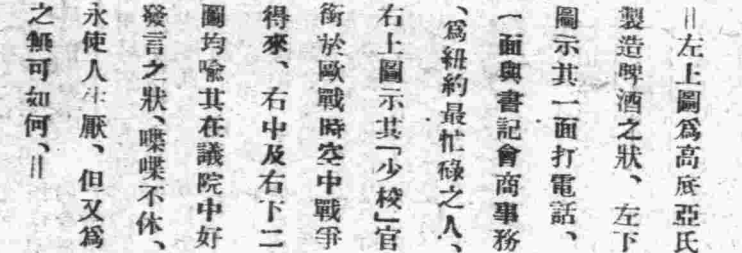 =左上圖爲高底亞氏
製造啤酒之狀、左下
圖示其一面打電話、
一面與書記會商事務
、爲紐約最忙碌之人、
右上圖示其「少校」官
銜於歐戰時空中戰爭
得來、右中及右下二
圖均喩其在議院中好
發言之狀、喋喋不休、
永使人生厭、但又爲
之無可如何、=